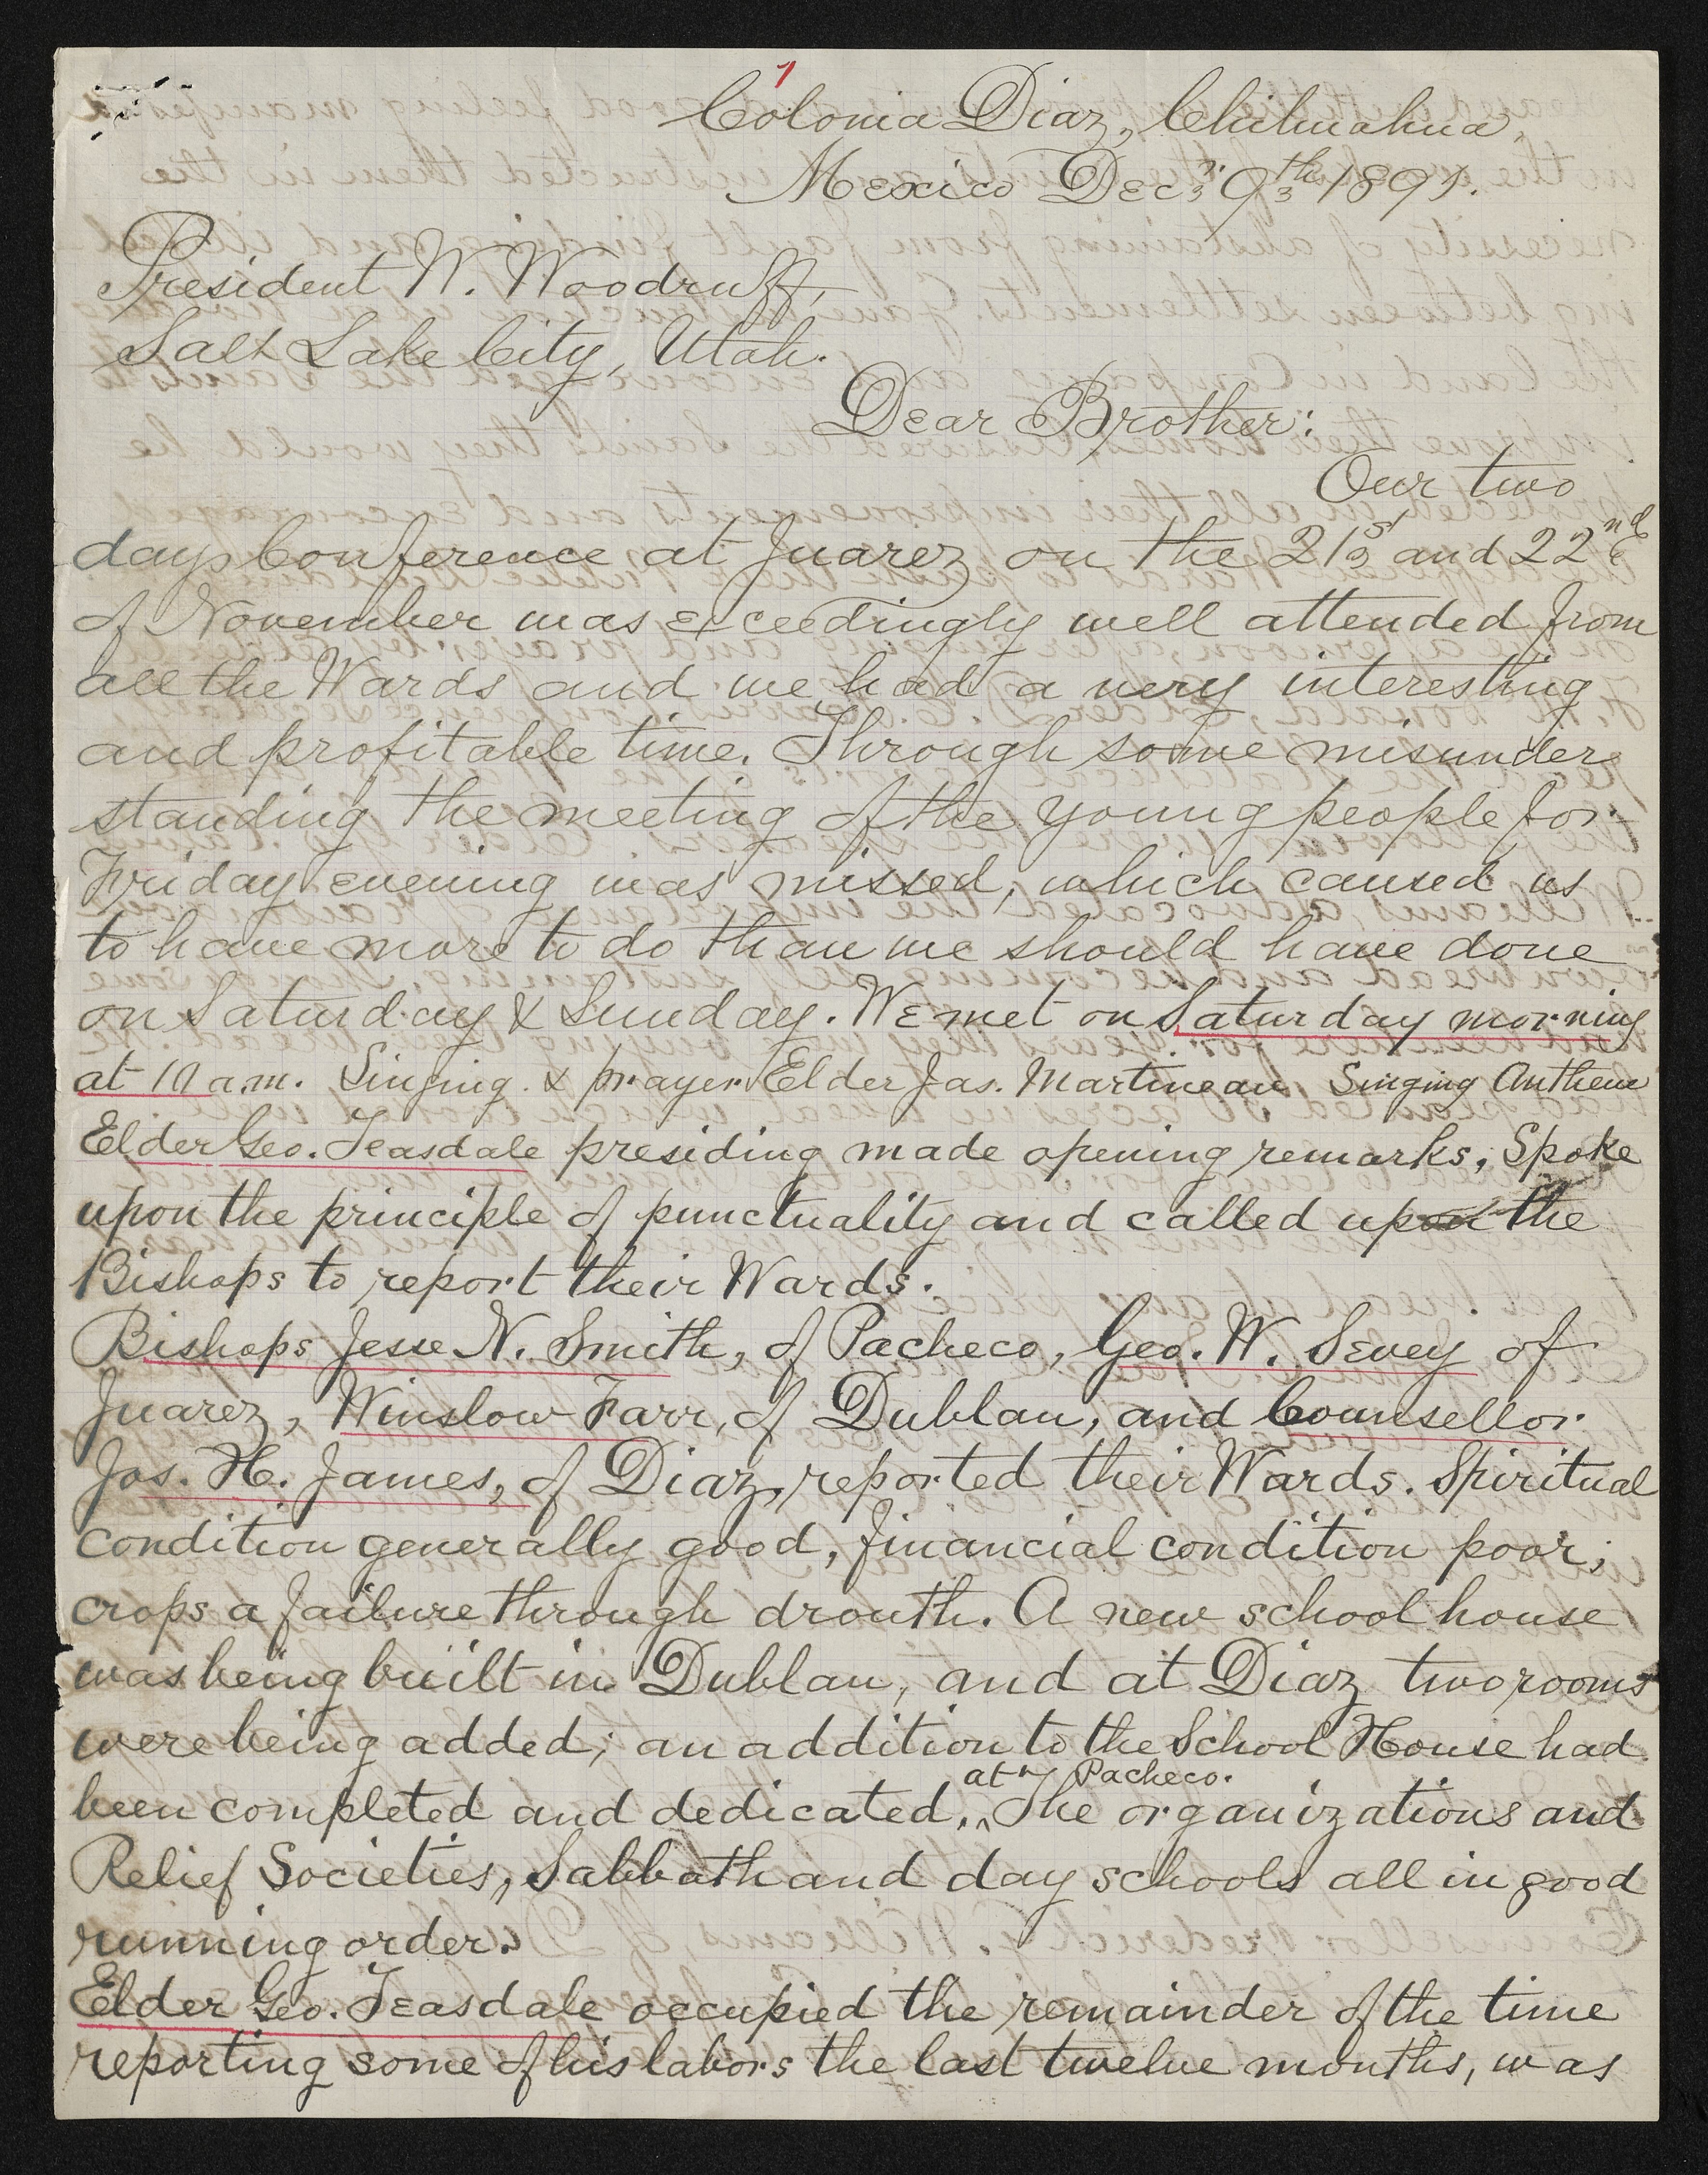 1
Colonia Diaz, Chihuahua,
Mexico Decr. 9th 1891.
President W. Woodruff,
Salt Lake City, Utah.
Dear Brother:
Our two
days Conference at Juarez on the 21st and 22nd
of November was exceedingly well attended from
all the Wards and we had a very interesting
and profitable time. Through some misunder
standing the meeting of the young people for
Friday evening was missed, which caused us
to have more to do than we should have done
on Saturday & Sunday. We met on Saturday morning
at 10 a.m. Singing. & prayer. Elder Jas. Martineau Singing Anthem
Elder Geo. Teasdale presiding made opening remarks, Spoke
upon the principle of punctuality and called upon the
Bishops to report their Wards.
Bishops Jesse N. Smith, of Pacheco, Geo. W. Sevey of
Juarez, Winslow Farr, of Dublan, and Counsellor
Jos. H. James, of Diaz, reported their Wards. Spiritual
condition generally good, financial condition poor;
crops a failure through drouth. A new school house
was being built in Dublan, and at Diaz two rooms
were being added; an addition to the School House had
at Pacheco.
been completed and dedicated.^ The organizations and
Relief Societies, Sabbath and day schools all in good
running order.
Elder Geo. Teasdale occupied the remainder of the time
reporting some of his labors the last twelve months, was